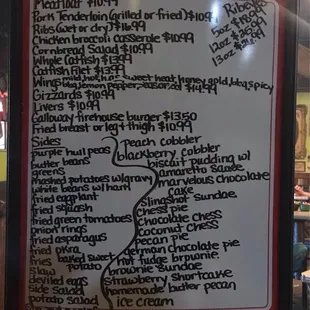 Meatloaf $10.99
Pork Tenderloin (grilled or fried) $10.99
Ribs (wet or dry) $16.99
Chicken broccoli casserole $10.99
Cornbread Salad $10.99
Whole Catfish $13.99
Catfish Filet $13.99
Wings mild, hot, sweet heat, honey gold, bbq, spicy
bbq, lemon pepper, $14.99
Gizzards $10.99
Livers $10.99
Galloway firehouse burger $13.50
Fried breast or leg + thigh $10.99
Ribeye
5oz
12oz
13oz
Sides
purple hull peas
butter beans
greens
mashed potatoes w/gravy
white beans w/ham
fried eggplant
fried squash
fried green tomatoes
onion rings
fried asparagus
fried okra
fries baked sweet
potato
slaw
deviled eggs
side salad
potato salad
peach cobbler
blackberry cobbler
biscuit pudding w/
amaretto sauce
marvelous chocolate
cake
Slingshot Sundae
Chess pie
Chocolate Chess
Coconut Chess
pecan pie
german chocolate pie
hot fudge brownie
brownie sundae
Strawberry Shortcake
homemade butter pecan
ice cream